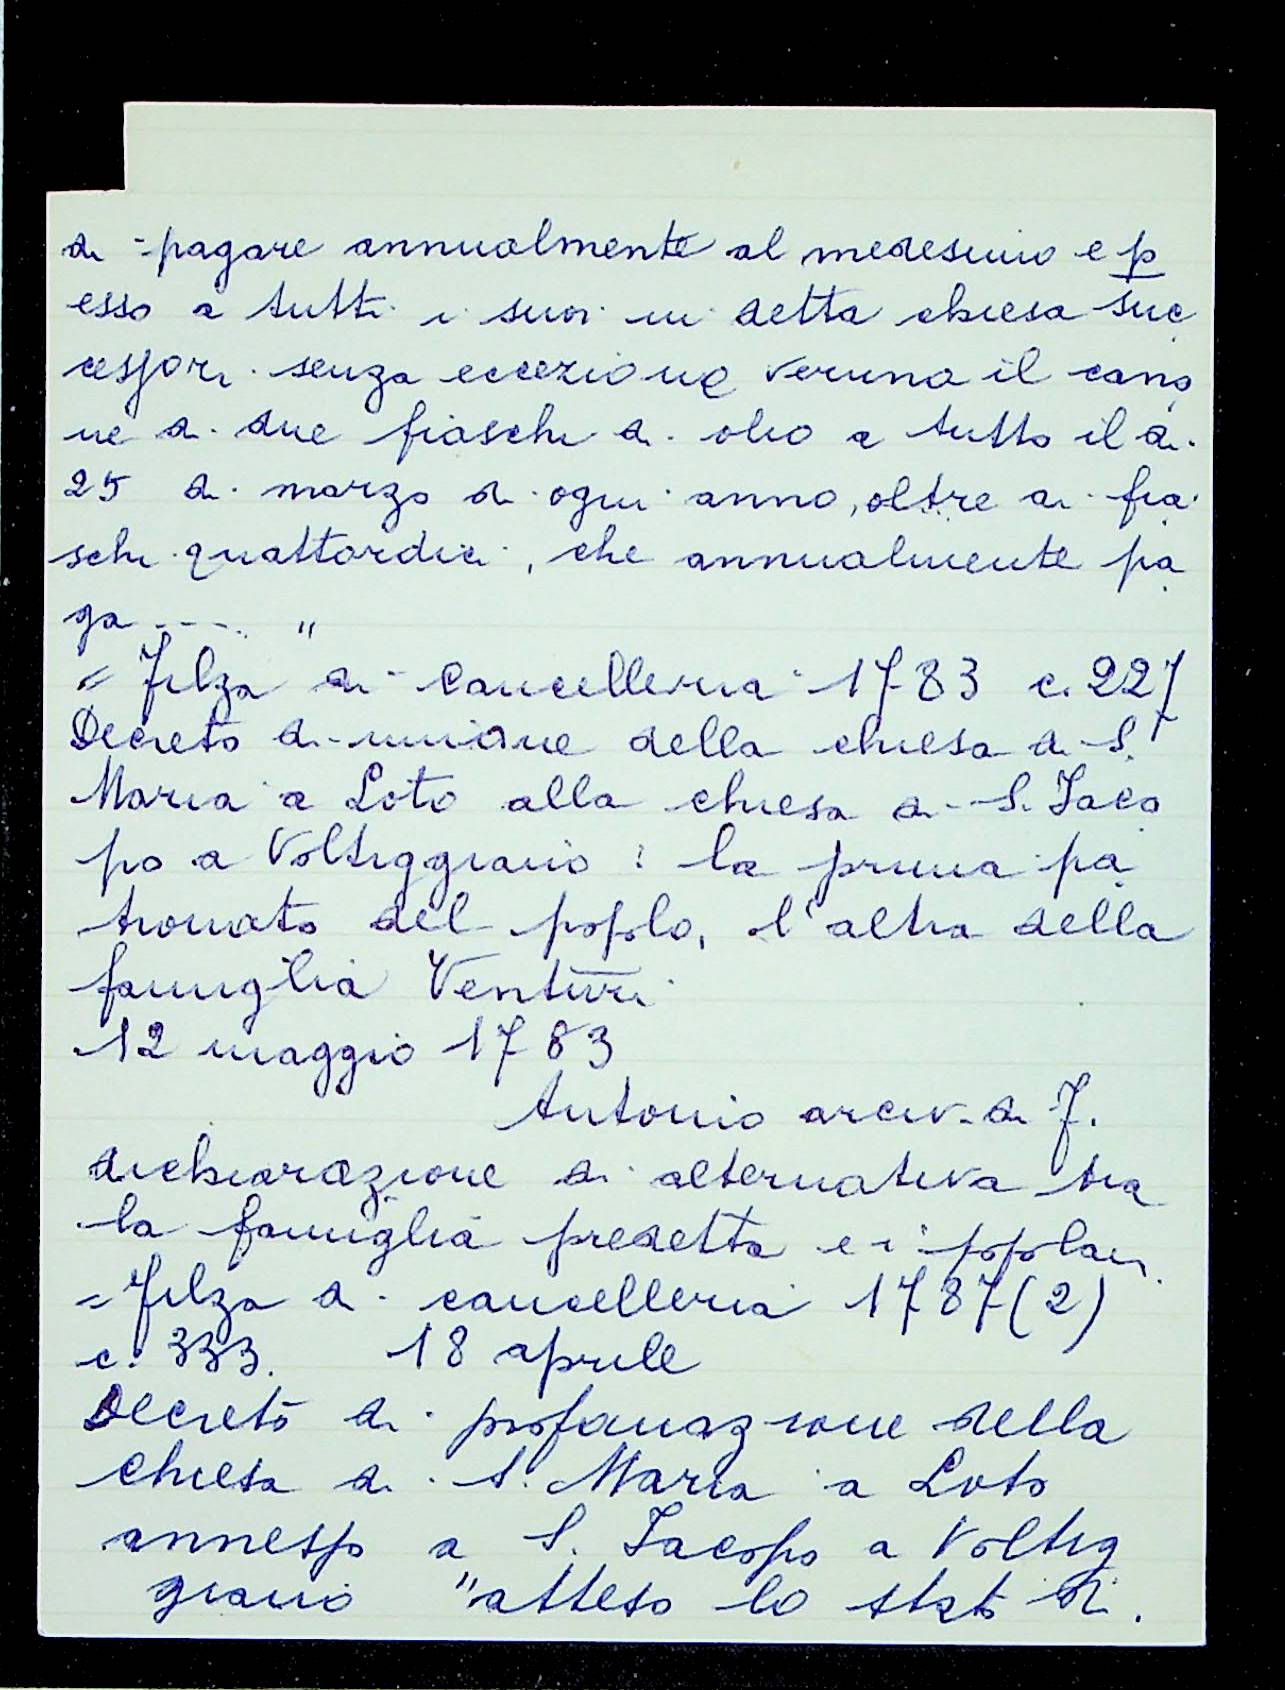 di pagare annualmente al medesimo e p
esso a tutti i suoi in detta chiesa suc
cessori senza eccezione veruna il cano
ne di due fiaschi di olio a tutto il di
25 di marzo di ogni anno, oltre ai fia
schi quattordici, che annualmente pa
ga ----. "
= Filza di cancelleria 1783 c. 227
Decreto di unione della chiesa di S.
Maria a Loto alla chiesa di S. Jaco
po a Voltiggiano: la prima pa
tronato del popolo, l'altra della
famiglia Venturi
12 maggio 1783
Antonio arciv. di F.
dichiarazione di alternativa tra
la famiglia predetta e i popolani
= Filza di cancelleria 1787 (2)
c. 333. 18 aprile
Decreto di profanazione della
chiesa di S. Maria a Loto
annesso a S. Jacopo a Voltig
giano "atteso lo stato di.